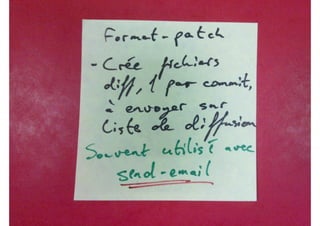 Format-patch
- Crée fichiers
diff, 1 par commit,
à envoyer sur
liste de diffusion
Souvent utilisé avec
send-email